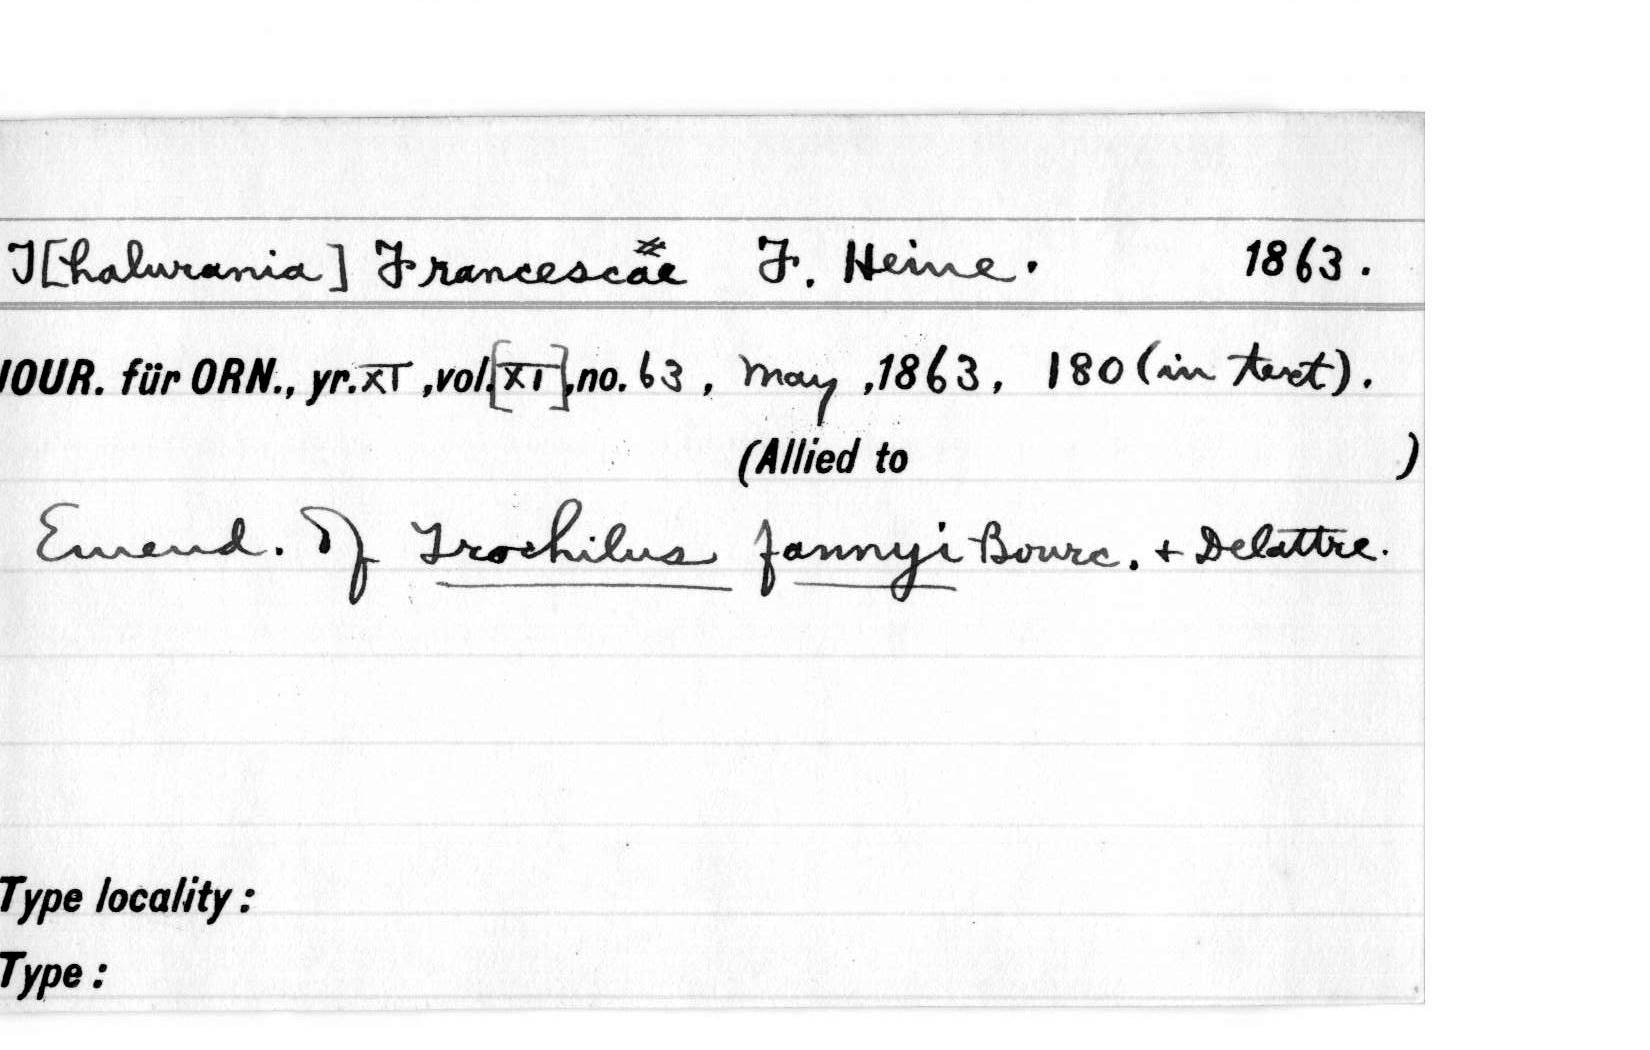 T[halurania] Francescae F. Heine. 1863.
JOUR. für ORN., yr. XI, vol. [XI], no. 63, May, 1863, 180 (in text).
(Allied to )
Emend. of Trochilus fannyi Bourc. + Delattre.
Type locality:
Type: